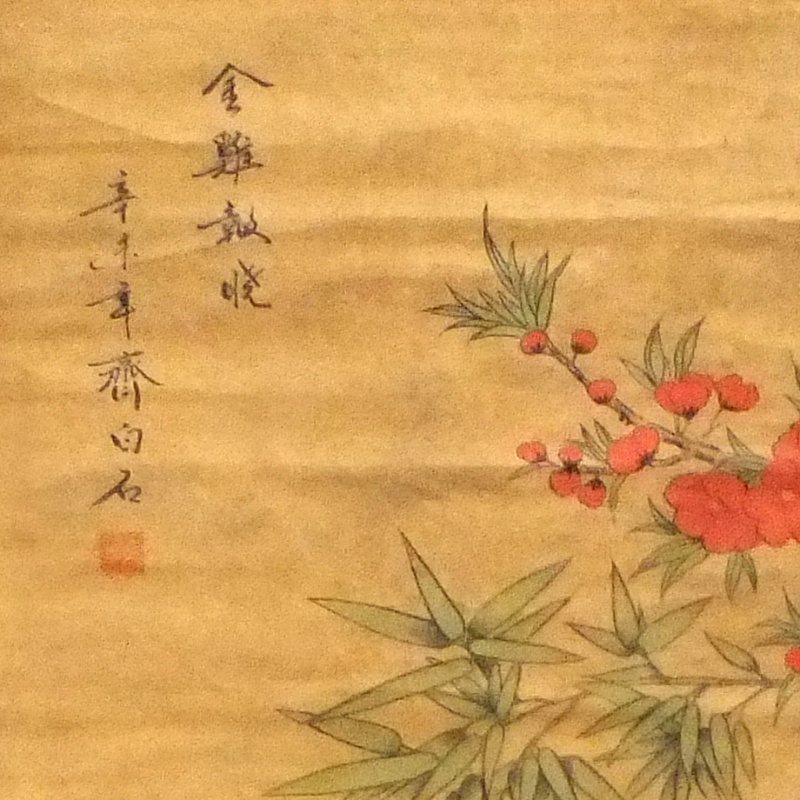 金雞報晓
辛未年齊白石